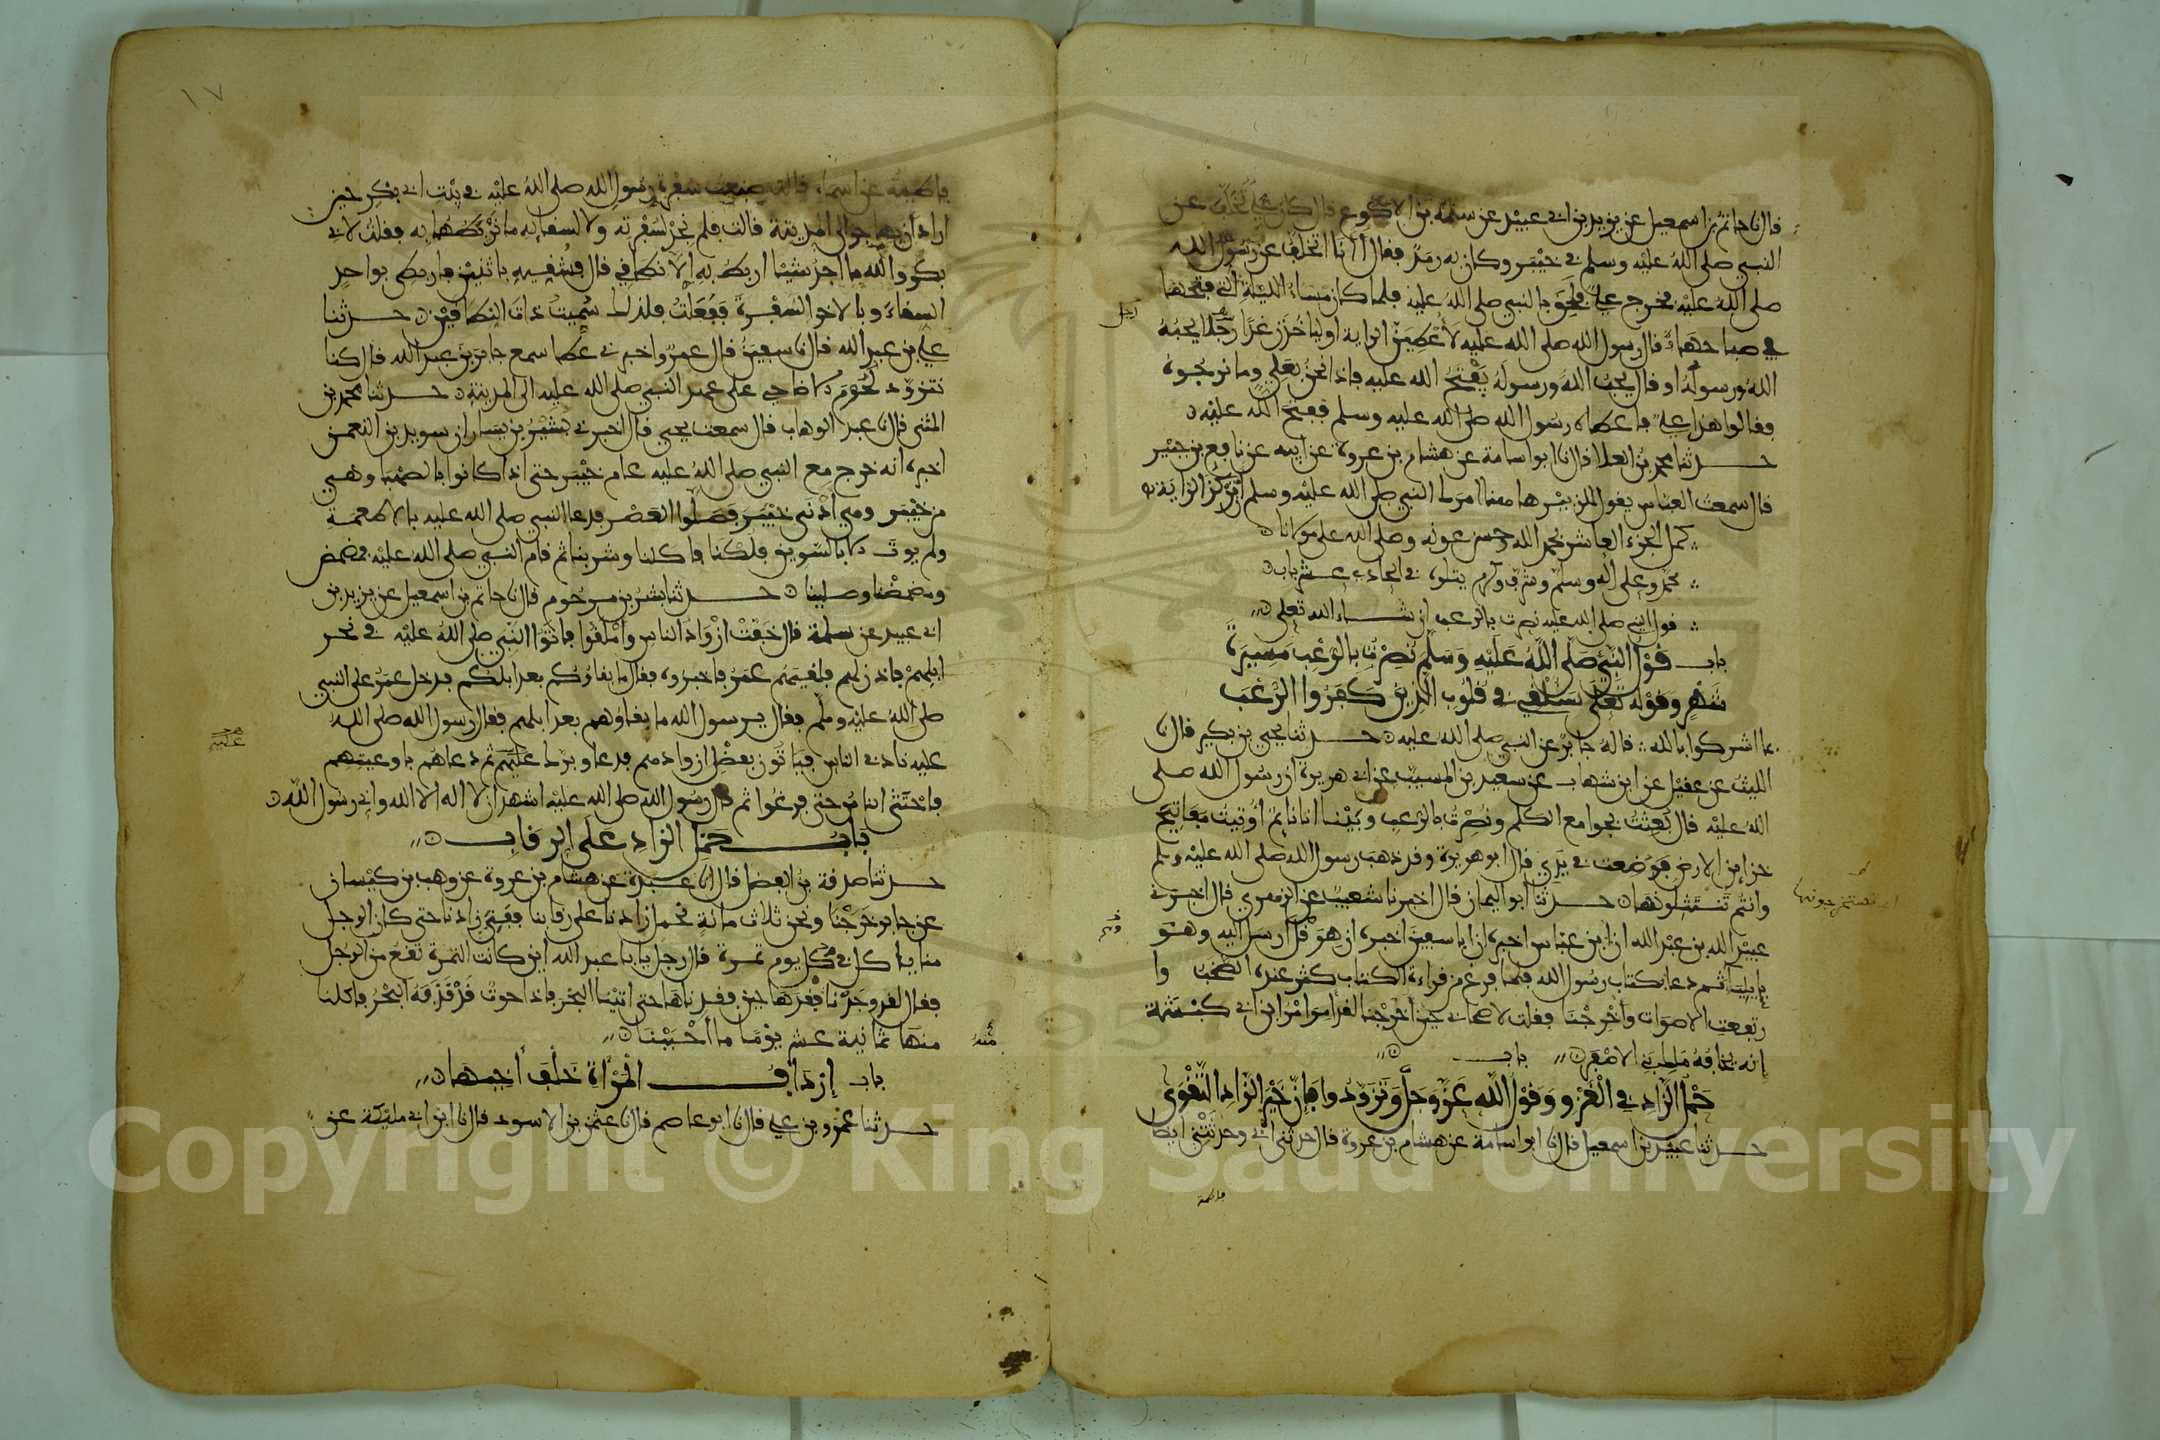 قال نا حاتم بن اسمعيل عن يزيد بن ابي عبيد عن سلمة بن الاكوع قال كان علي تخلف عن
النبي صلى الله عليه وسلم في خيبر وكان به رمد فقال أنا اتخلف عن رسول الله
صلى الله عليه فخرج علي فلحق بالنبي صلى الله عليه فلما كان مساء الليلة التي فتحها
في صباحها قال رسول الله صلى الله عليه لأعطين الراية او لياخذن غدا رجلا يحبه
رجل
الله ورسوله او قال يحب الله ورسوله يفتح الله عليه فاذا نحن بعلي وما نرجوه
فقالوا هذا علي فاعطاه رسول الله صلى الله عليه وسلم ففتح الله عليه
حدثنا محمد بن العلا قال نا ابو اسامة عن هشام بن عروة عن ابيه عن نافع بن جبير
قال سمعت العباس يقول للزبير ها هنا امرك النبي صلى الله عليه وسلم ان تركز الراية
كمل الجزء العاشر بحمد الله وحسن عونه وصلى الله على مولانا
محمد وعلى اله وسلم وشرف وكرم يتلوه في الحادي عشر باب
قول النبي صلى الله عليه نصرت بالرعب ان شاء الله تعلى
باب قول النبي صلى الله عليه وسلم نصرت بالرعب مسيرة
شهر وقوله تعلى سنلقي في قلوب الذين كفروا الرعب
بما اشركوا بالله قاله جابر عن النبي صلى الله عليه حدثنا يحيى بن بكير قال نا
الليث عن عقيل عن ابن شهاب عن سعيد بن المسيب عن ابي هريرة ان رسول الله صلى
الله عليه قال بعثت بجوامع الكلم ونصرت بالرعب وبينا انا نائم اوتيت مفاتيح
خزائن الارض فوضعت في يدي قال ابو هريرة وقد ذهب رسول الله صلى الله عليه وسلم
وانتم تنتثلونها حدثنا ابو اليمان قال اخبرنا شعيب عن الزهري قال اخبرني
عبيد الله بن عبد الله ان ابن عباس اخبره ان ابا سفين اخبره ان هرقل ارسل اليه وهو
بايليا ثم دعا بكتاب رسول الله فلما فرغ من قراءة الكتاب كثر عنده الصخب وا
رتفعت الاصوات وأخرجنا فقلت لاصحابي حين أخرجنا لقد أمر أمر ابن ابي كبشة
انه يخافه ملك بني الاصفر باب
حمل الزاد في الغزو وقول الله عز وجل وتزودوا فإن خير الزاد التقوى
حدثنا عبيد بن اسمعيل قال نا ابو اسامة عن هشام بن عروة قال حدثني ابي وحدثتني ايضا
فاطمة
١٧
فاطمة عن اسماء قالت صنعت سفرة رسول الله صلى الله عليه في بيت ابي بكر حين
اراد ان يهاجر الى المدينة قالت فلم نجد لسفرته ولا لسقايه ما نربطهما به فقلت لابي
بكر والله ما اجد شيئا اربط به الا نطاقي قال فشقيه باثنين فاربطي بواحد
السقاء وبالاخر السفرة ففعلت فلذلك سميت ذات النطاقين حدثنا
علي بن عبد الله قال نا سفين قال عمرو اخبرني عطا سمع جابر بن عبد الله قال كنا
نتزود لحوم الاضاحي على عهد النبي صلى الله عليه الى المدينة حدثنا محمد بن
المثنى قال نا عبد الوهاب قال سمعت يحيى قال اخبرني بشير بن يسار ان سويد بن النعمن
اخبره انه خرج مع النبي صلى الله عليه عام خيبر حتى اذا كانوا بالصهبا وهي
من خيبر وهي أدنى خيبر فصلوا العصر فدعا النبي صلى الله عليه بالاطعمة
ولم يوت الا بالسويق فلكنا فاكلنا وشربنا ثم قام النبي صلى الله عليه فمضمض
ومضمضنا وصلينا حدثنا بشر بن مرحوم قال نا حاتم بن اسمعيل عن يزيد بن
ابي عبيد عن سلمة قال خفت ازواد الناس وأملقوا فاتوا النبي صلى الله عليه في نحر
ابلهم فاذن لهم فلقيهم عمر فاخبروه فقال ما بقاؤكم بعد ابلكم فدخل عمر على النبي
صلى الله عليه وسلم فقال يرسول الله ما بقاؤهم بعد ابلهم فقال رسول الله صلى الله
عليه ناد في الناس فياتون بفضل ازوادهم فدعا وبرك عليهم ثم دعاهم باوعيتهم
فاحتثى الناس حتى فرغوا ثم قال رسول الله صلى الله عليه اشهد ان لا اله الا الله واني رسول الله
باب حمل الزاد على الرقاب
حدثنا صدقة بن الفضل قال نا عبدة عن هشام بن عروة عن وهب بن كيسان
عن جابر خرجنا ونحن ثلاث مائة نحمل زادنا على رقابنا ففني زادنا حتى كان الرجل
منا ياكل في كل يوم تمرة قال رجل يابا عبد الله اين كانت التمرة تقع من الرجل
فقال لقد وجدنا فقدها حين فقدناها حتى اتينا البحر فاذا حوت قد قذفه البحر فاكلنا
منها ثمانية عشر يوما ما أحببنا
منه
باب إرداف المرأة خلف أخيها
حدثنا عمرو بن علي قال نا ابو عاصم قال نا عثمن بن الاسود قال نا ابن ابي مليكة عن
Copyright © King Saud University